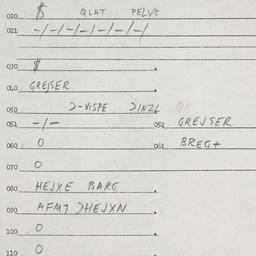 020 $ QLAT PELVE
021 -/-/-/-/-/-/-/
030 $
040 GREJSER
050 Ɔ-VISPE ƆINZL
051 -/- 052 GREJSER
060 0 061 BREG+
070 0
080 HEJXE BARG
090 AFM7 ƆHEJXN
100 0
110 0